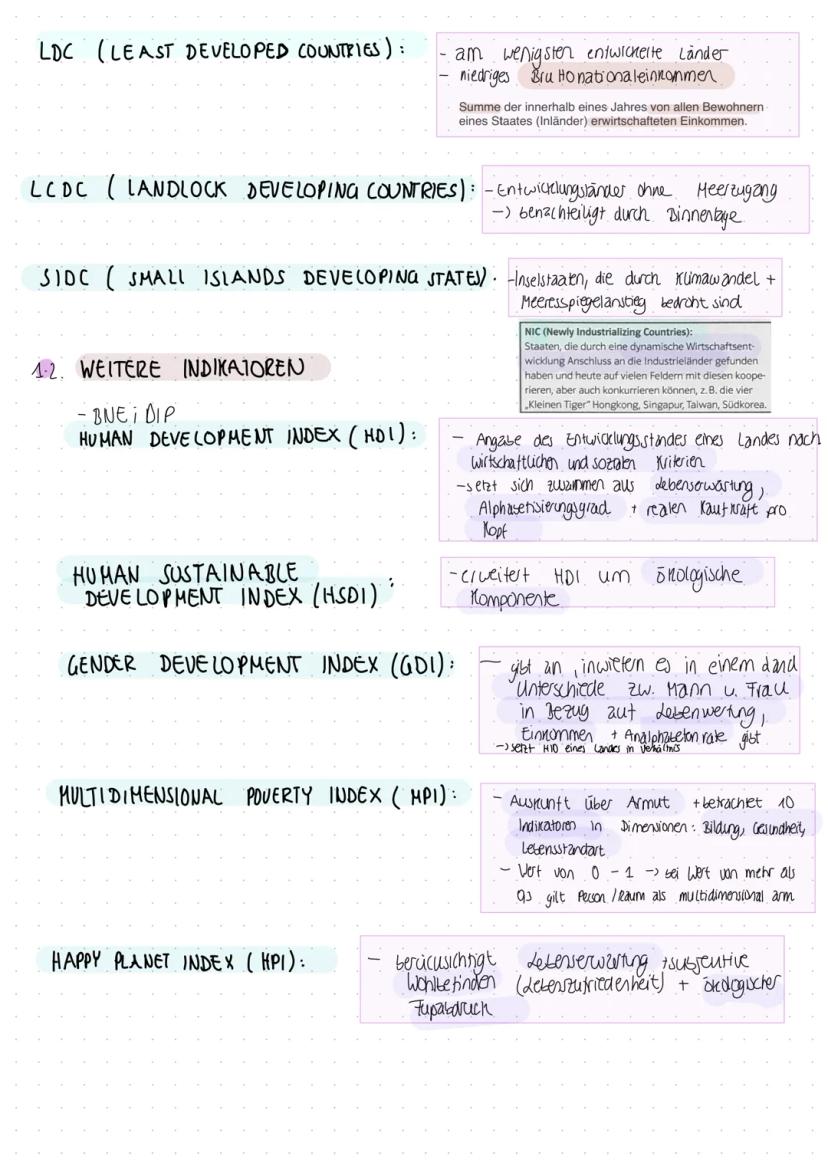 LDC (LEAST DEVELOPED COUNTRIES):
- am wenigsten entwickelte Länder
- niedriges Bruttonationaleinkommen
Summe der innerhalb eines Jahres von allen Bewohnern
eines Staates (Inländer) erwirtschafteten Einkommen.
LCDC (LANDLOCK DEVELOPING COUNTRIES):
- Entwicklungsländer ohne Meerzugang
-> benachteiligt durch Binnenlage
SIDC (SMALL ISLANDS DEVELOPING STATES).
- Inselstaaten, die durch Klimawandel +
Meeresspiegelanstieg bedroht sind
NIC (Newly Industrializing Countries):
Staaten, die durch eine dynamische Wirtschaftsent-
wicklung Anschluss an die Industrieländer gefunden
haben und heute auf vielen Feldern mit diesen koope-
rieren, aber auch konkurrieren können, z.B. die vier
„Kleinen Tiger" Hongkong, Singapur, Taiwan, Südkorea.
1.2. WEITERE INDIKATOREN
- BNE ; BIP
HUMAN DEVELOPMENT INDEX (HDI):
- Angabe des Entwicklungsstandes eines Landes nach
wirtschaftlichen und sozialen Kriterien
- setzt sich zusammen aus Lebenserwartung,
Alphabetisierungsgrad + realen Kaufkraft pro
Kopf
HUMAN SUSTAINABLE
DEVELOPMENT INDEX (HSDI):
- erweitert HDI um ökologische
Komponente
GENDER DEVELOPMENT INDEX (GDI):
- gibt an, inwiefern es in einem Land
Unterschiede zw. Mann u. Frau
in Bezug auf Lebenwertung,
Einkommen + Analphabetenrate gibt
-> setzt HID eines Landes in Verhältnis
MULTIDIMENSIONAL POVERTY INDEX (MPI):
- Auskunft über Armut + betrachtet 10
Indikatoren in Dimensionen: Bildung, Gesundheit,
Lebensstandart
- Wert von 0 - 1 -> bei Wert von mehr als
0,3 gilt Person / Raum als multidimensional arm
HAPPY PLANET INDEX (HPI):
- berücksichtigt Lebenserwartung + subjektive
Wohlbefinden (Lebenszufriedenheit) + ökologischer
Fußabdruck